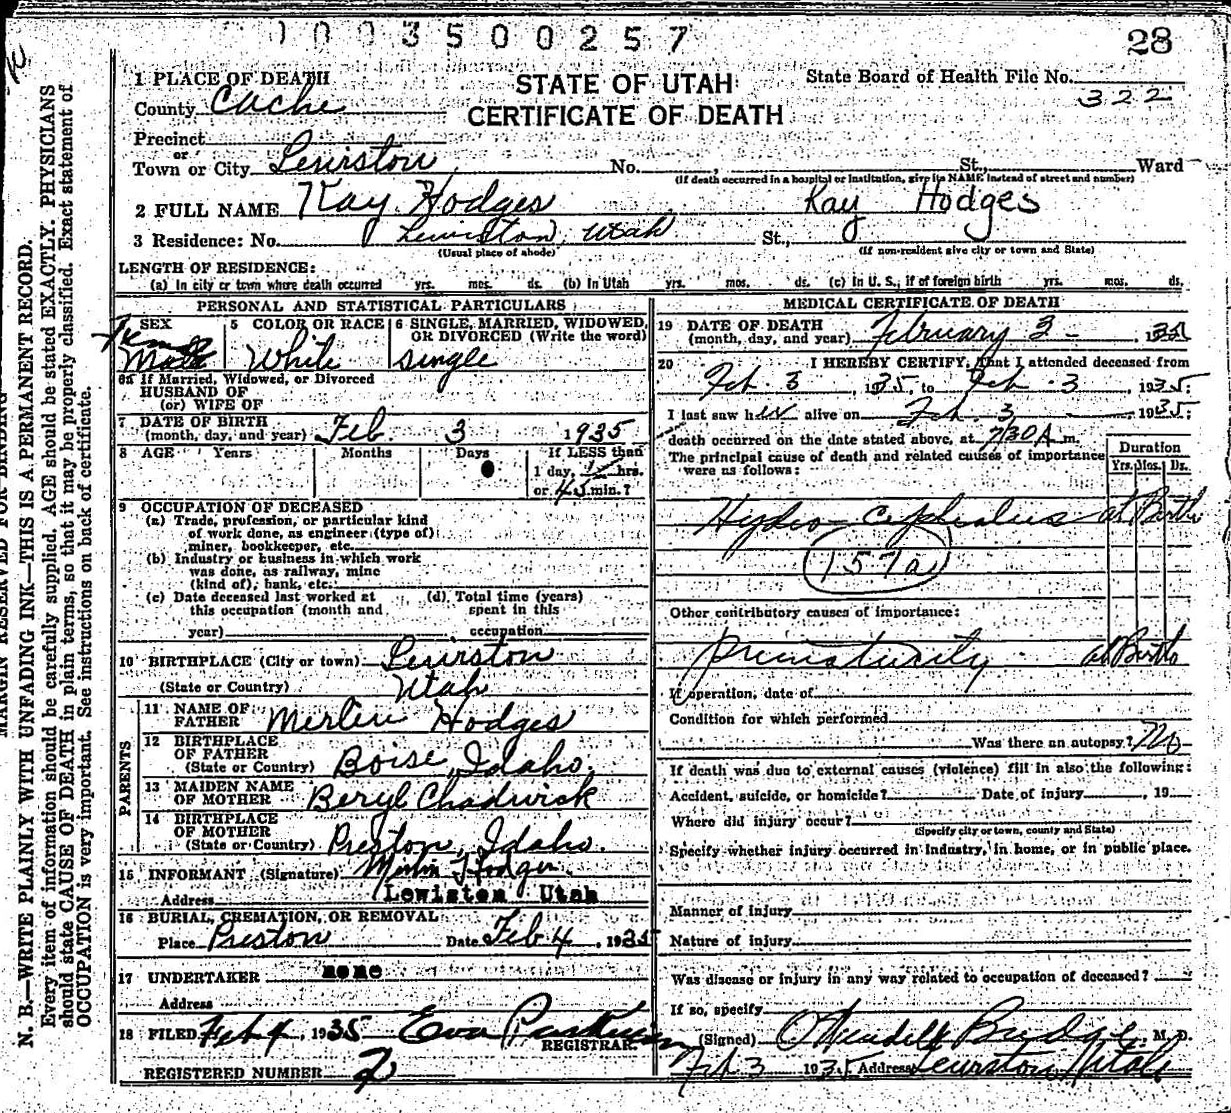 1003500257
28
1 PLACE OF DEATH
STATE OF UTAH
State Board of Health File No.
County Cache
CERTIFICATE OF DEATH
322
Precinct
or
Town or City Lewiston No. St., Ward
(If death occurred in a hospital or institution, give its NAME instead of street and number)
2 FULL NAME Kay Hodges Kay Hodges
3 Residence: No. Lewiston, Utah St.,
(Usual place of abode) (If non-resident give city or town and State)
LENGTH OF RESIDENCE:
(a) In city or town where death occurred yrs. mos. ds. (b) In Utah yrs. mos. ds. (c) In U. S., if of foreign birth yrs. mos. ds.
PERSONAL AND STATISTICAL PARTICULARS
SEX 5 COLOR OR RACE 6 SINGLE, MARRIED, WIDOWED,
OR DIVORCED (Write the word)
Fem
Male White single
6a If Married, Widowed, or Divorced
HUSBAND OF
(or) WIFE OF
7 DATE OF BIRTH
(month, day, and year) Feb. 3 1935
8 AGE Years Months Days If LESS than
1 day, hrs.
or 45 min.?
9 OCCUPATION OF DECEASED
(a) Trade, profession, or particular kind
of work done, as engineer (type of)
miner, bookkeeper, etc.
(b) Industry or business in which work
was done, as railway, mine
(kind of), bank, etc.
(c) Date deceased last worked at (d) Total time (years)
this occupation (month and spent in this
year) occupation
10 BIRTHPLACE (City or town) Lewiston
(State or Country) Utah
PARENTS
11 NAME OF
FATHER Merlin Hodges
12 BIRTHPLACE
OF FATHER
(State or Country) Boise, Idaho.
13 MAIDEN NAME
OF MOTHER Beryl Chadwick
14 BIRTHPLACE
OF MOTHER
(State or Country) Preston, Idaho.
15 INFORMANT (Signature) Merlin Hodges
Address Lewiston Utah
16 BURIAL, CREMATION, OR REMOVAL
Place Preston Date Feb 4, 1935
17 UNDERTAKER none
Address
18 FILED Feb 4, 1935 Eva
REGISTRAR.
REGISTERED NUMBER 2
MEDICAL CERTIFICATE OF DEATH
19 DATE OF DEATH
(month, day, and year) February 3 - , 1935
20 I HEREBY CERTIFY, That I attended deceased from
Feb. 3, 1935 to Feb. 3, 1935.
I last saw her alive on Feb. 3 1935;
death occurred on the date stated above, at 7/30 A. m.
The principal cause of death and related causes of importance
were as follows:
Duration
Yrs. Mos. Ds.
Hydro-cephalus at Birth
157a
Other contributory causes of importance:
Prematurity at Birth
If operation, date of
Condition for which performed
Was there an autopsy? No
If death was due to external causes (violence) fill in also the following:
Accident, suicide, or homicide? Date of injury , 19
Where did injury occur?
(Specify city or town, county and State)
Specify whether injury occurred in Industry, in home, or in public place.
Manner of injury
Nature of injury
Was disease or injury in any way related to occupation of deceased?
If so, specify
(Signed) O Wendell Budge, M. D.
Feb 3 1935 Address Lewiston Utah
N. B.—WRITE PLAINLY WITH UNFADING INK—THIS IS A PERMANENT RECORD.
Every item of information should be carefully supplied. AGE should be stated EXACTLY. PHYSICIANS
should state CAUSE OF DEATH in plain terms, so that it may be properly classified. Exact statement of
OCCUPATION is very important. See instructions on back of certificate.
MARGIN RESERVED FOR BINDING